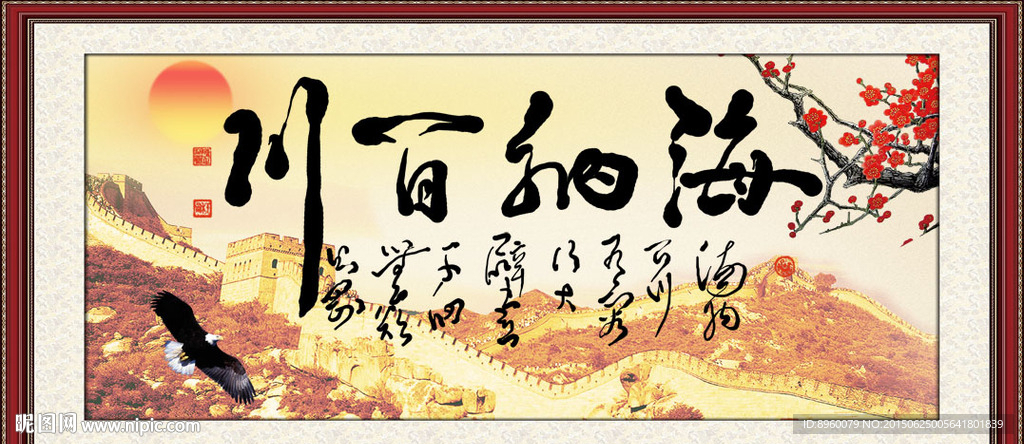 海纳百川
海纳
百川
有容
乃大
壁立
千仞
無欲
则刚
昵图网 www.nipic.com
ID:8960079 NO:20150625005641801839